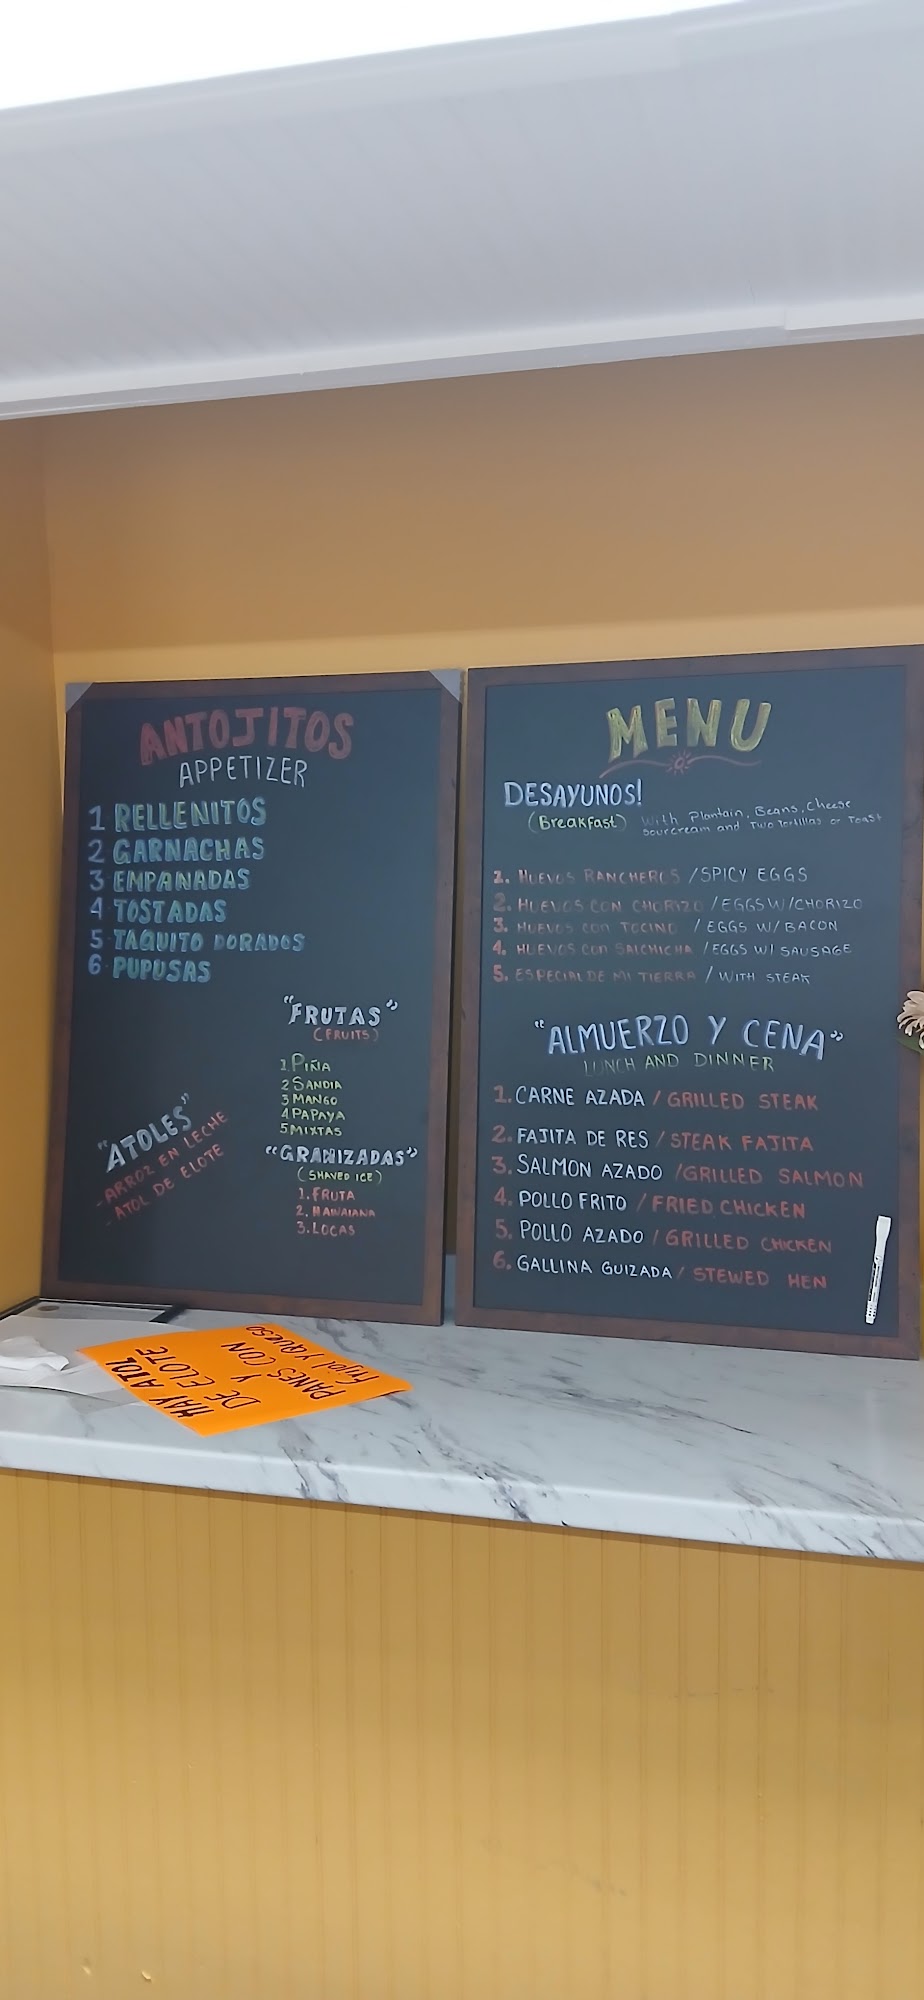 ANTOJITOS
APPETIZER
1 RELLENITOS
2 GARNACHAS
3 EMPANADAS
4 TOSTADAS
5 TAQUITO DORADOS
6 PUPUSAS
"FRUTAS"
(FRUITS)
1. PIÑA
2 SANDIA
3 MANGO
4 PAPAYA
5 MIXTAS
"ATOLES"
- ARROZ EN LECHE
- ATOL DE ELOTE
"GRANIZADAS"
(SHAVED ICE)
1. FRUTA
2. HAWAIANA
3. LOCAS
MENU
DESAYUNOS!
(Breakfast) With Plantain, Beans, Cheese
Sourcream and Two Tortillas or Toast
1. HUEVOS RANCHEROS / SPICY EGGS
2. HUEVOS CON CHORIZO / EGGS W/CHORIZO
3. HUEVOS CON TOCINO / EGGS W/ BACON
4. HUEVOS CON SALCHICHA / EGGS W/ SAUSAGE
5. ESPECIAL DE MI TIERRA / WITH STEAK
"ALMUERZO Y CENA"
LUNCH AND DINNER
1. CARNE AZADA / GRILLED STEAK
2. FAJITA DE RES / STEAK FAJITA
3. SALMON AZADO / GRILLED SALMON
4. POLLO FRITO / FRIED CHICKEN
5. POLLO AZADO / GRILLED CHICKEN
6. GALLINA GUIZADA / STEWED HEN
HAY ATOL
DE ELOTE
Y
PANES CON
Frijol y QUESO